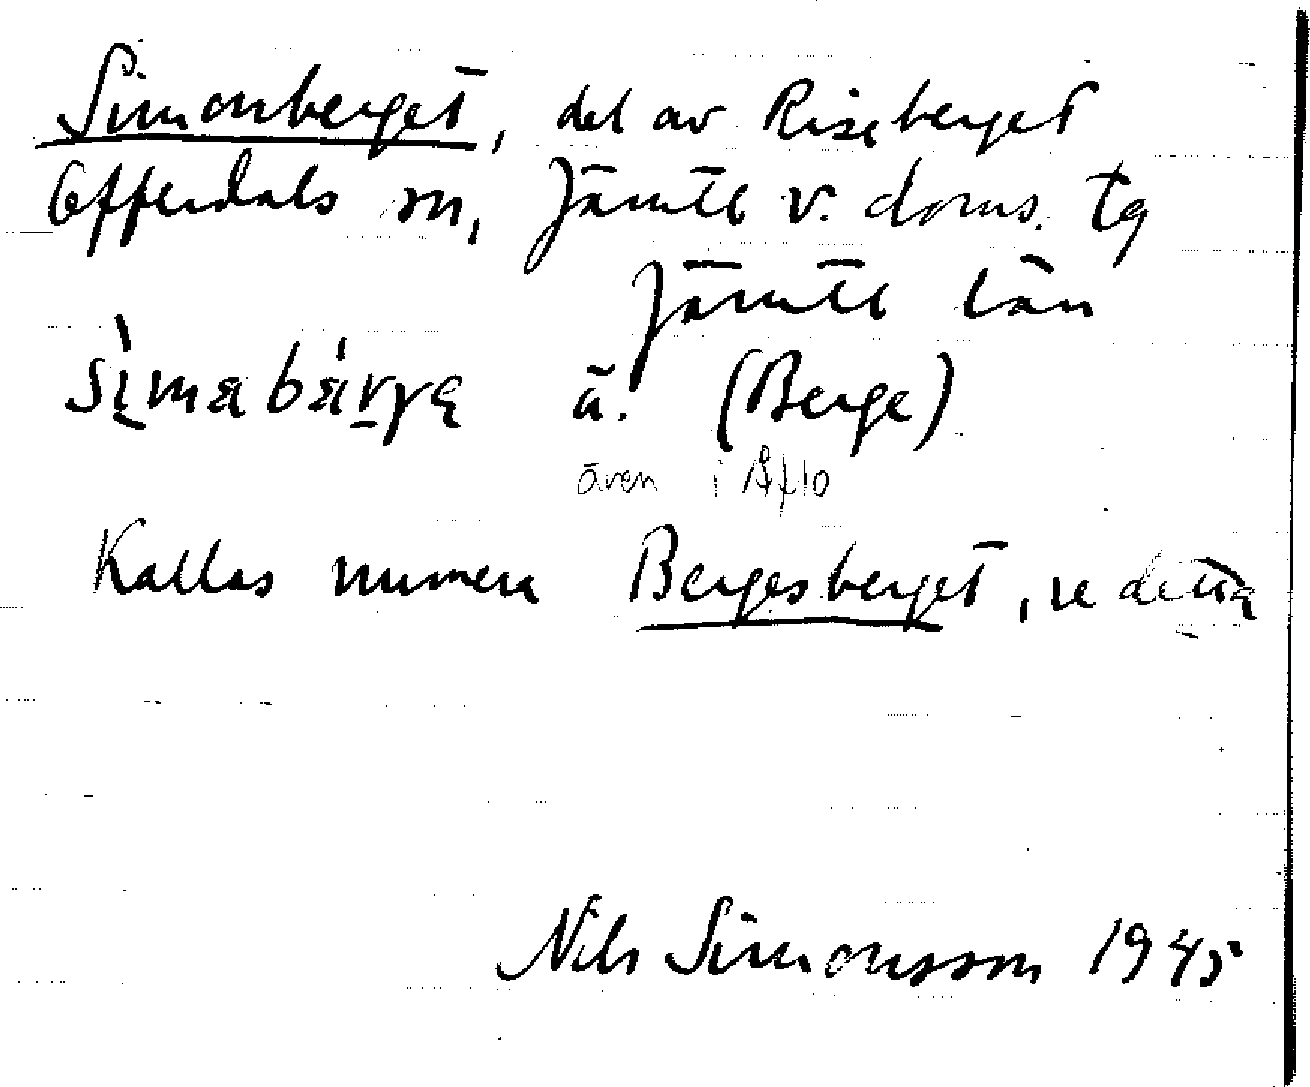 Simonberget, del av Riseberget
Offerdals sn, Jämtl v. doms. tg
Jämtl län
sìmabärgę ä. (Berge)
även i Åflo
Kallas numera Bergesberget, se detta
Nils Simonsson 1945